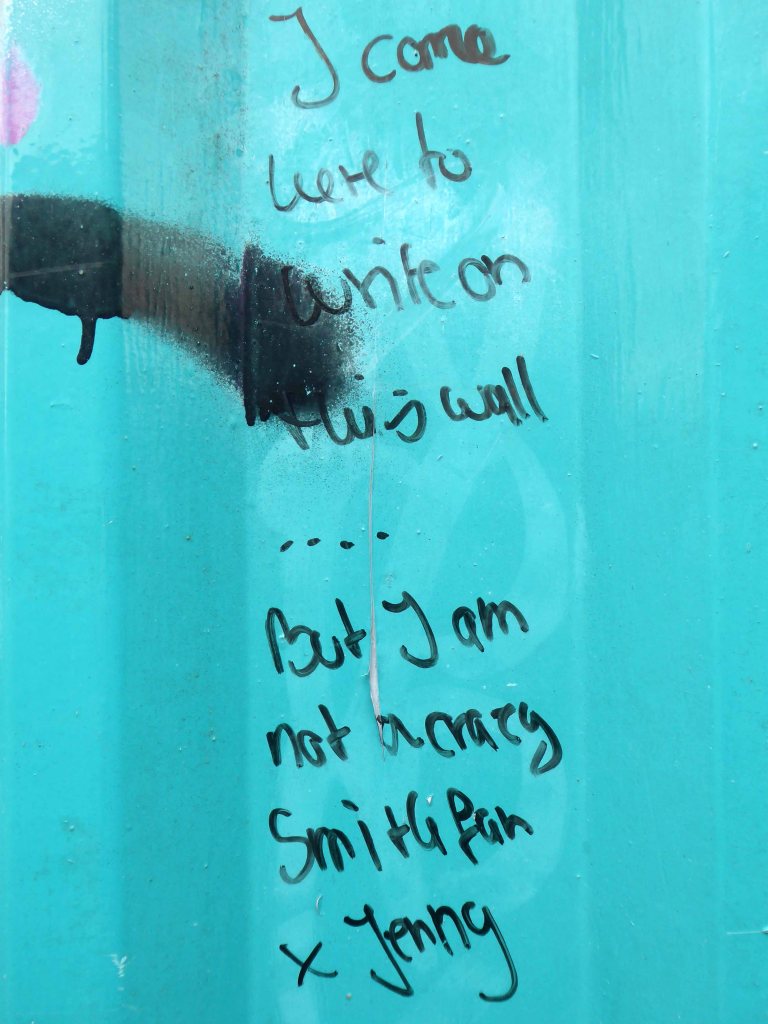 I come
here to
write on
this wall
....
But I am
not a crazy
Smith fan
x Jenny